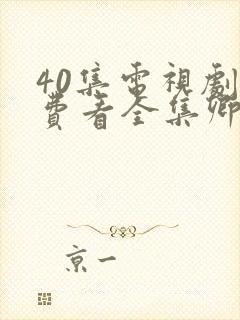 40集電視劇
費看全集卿
京一